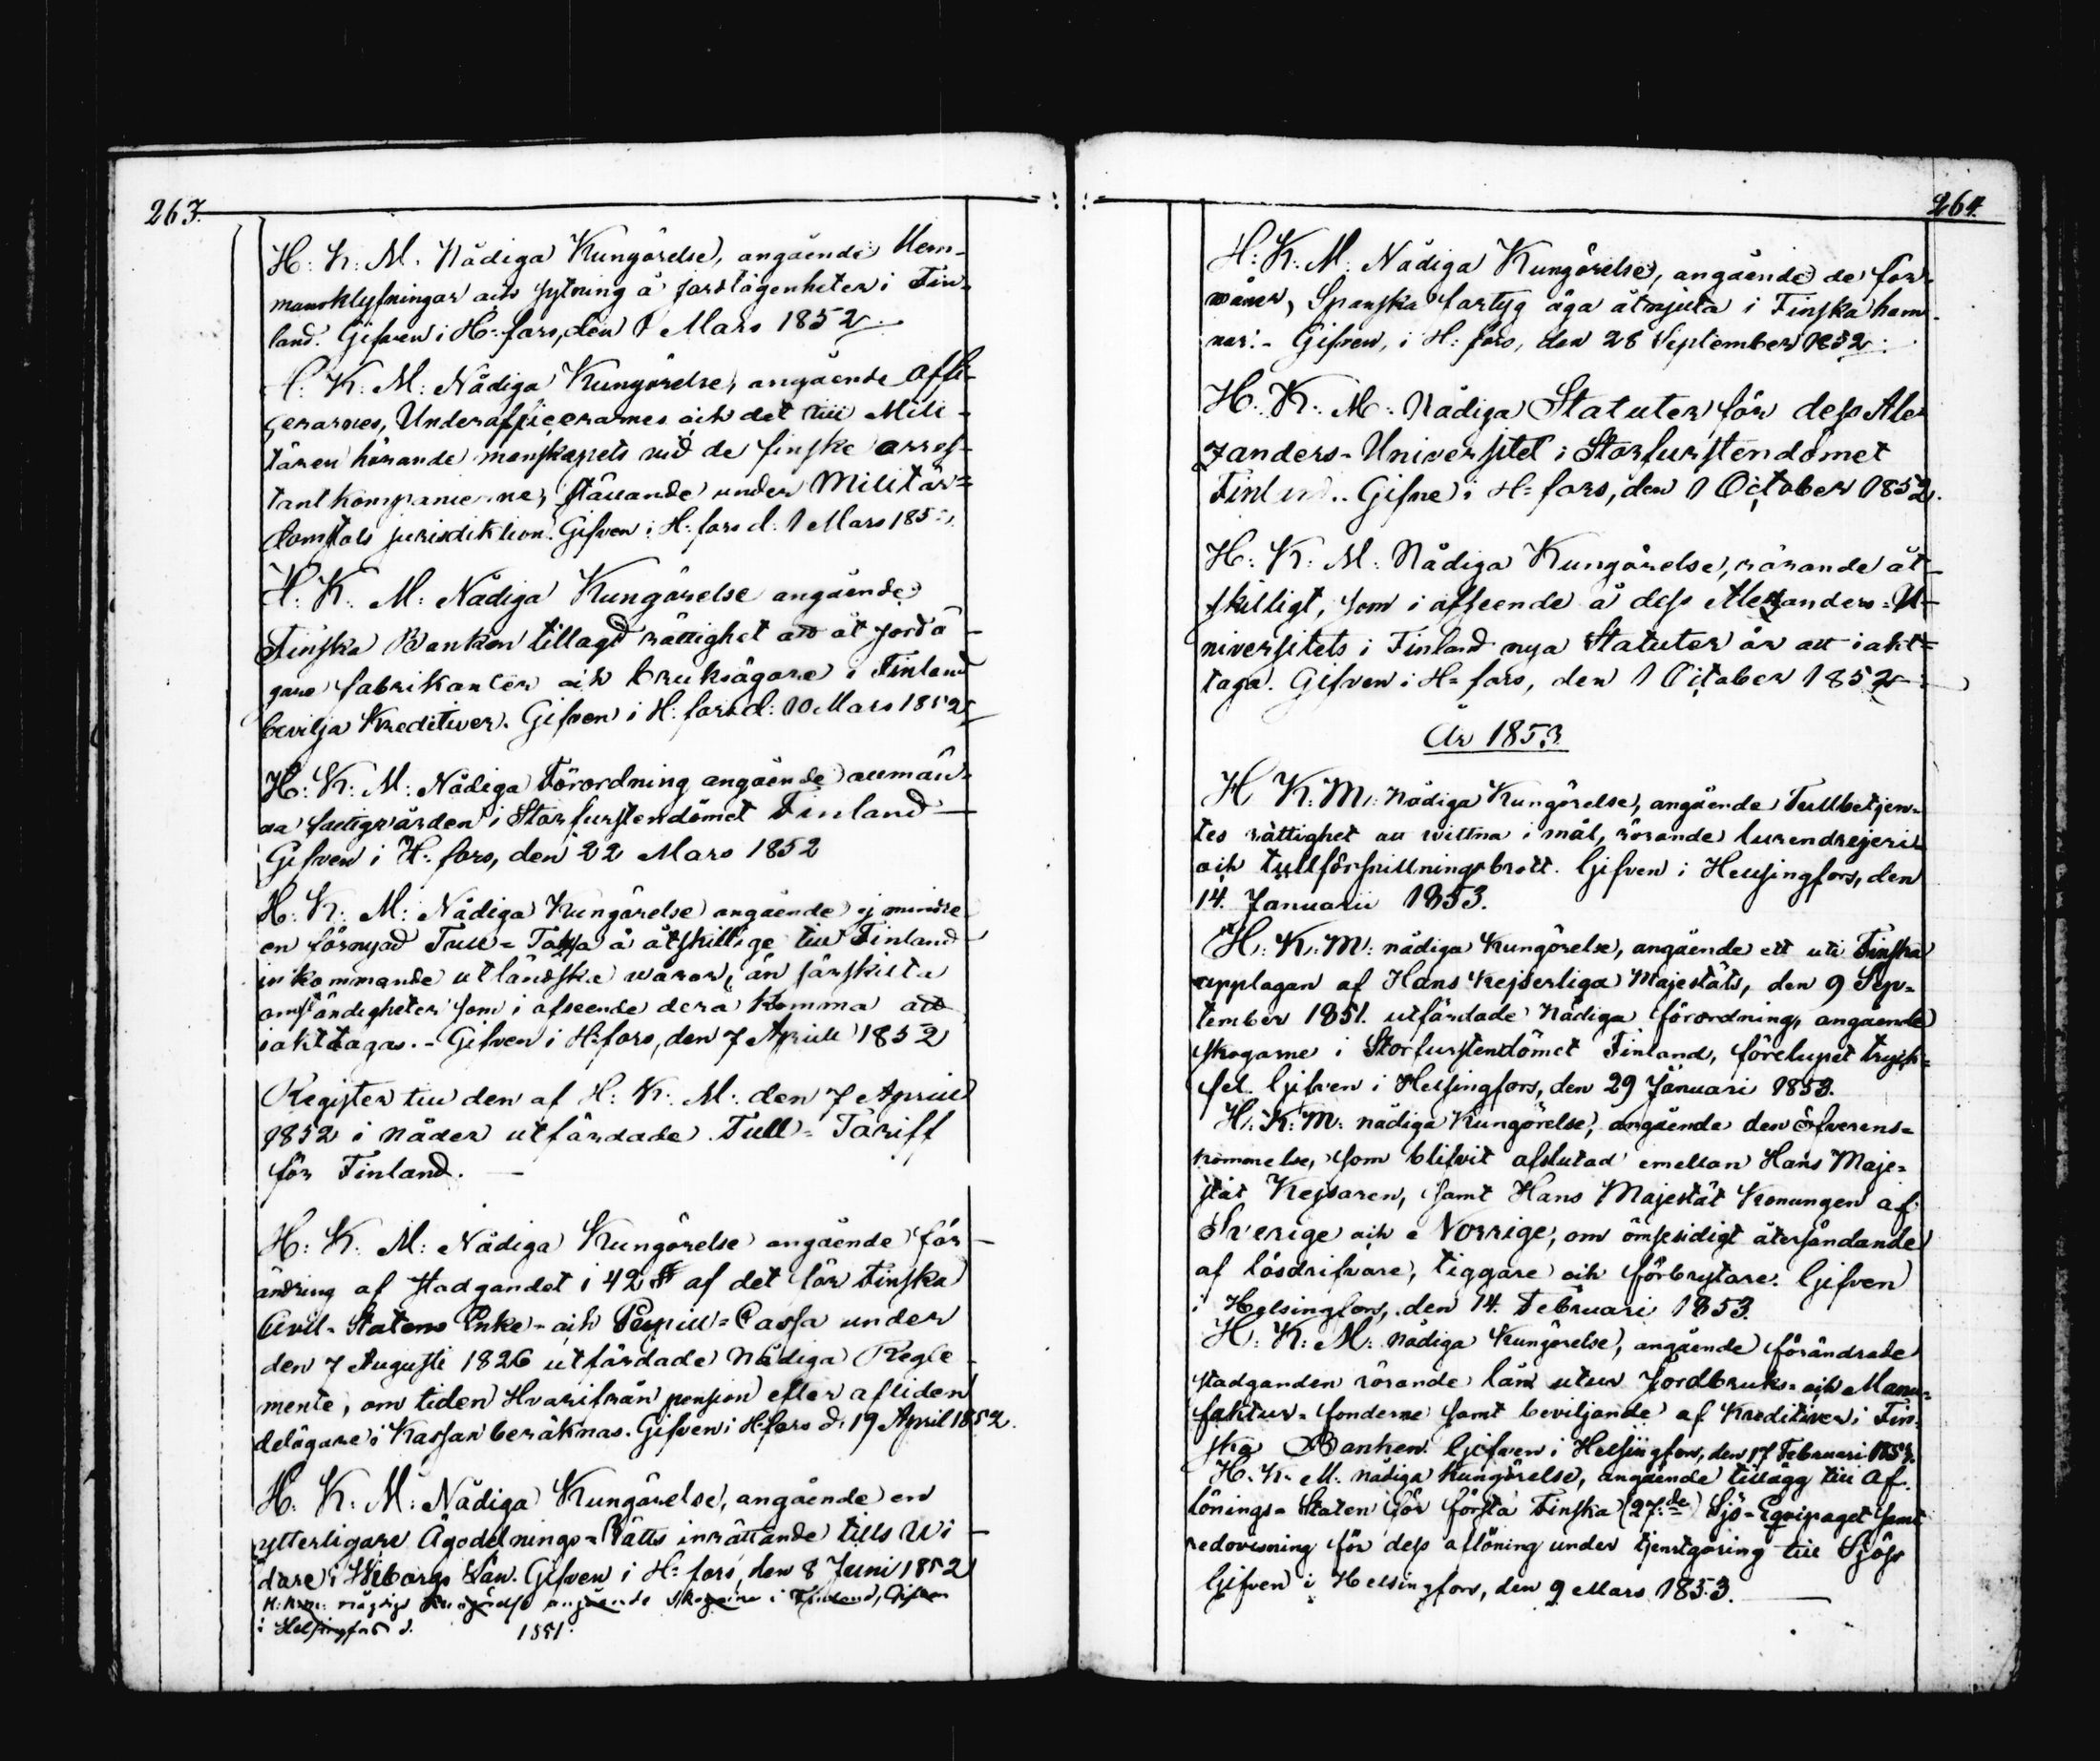 263.
H: K: M: Nådiga Kungörelse, angående Hem-
mansklyfningar och sytning å jordlägenheter i Fin-
land. Gifven i H:fors, den 1 Mars 1852.
H: K: M: Nådiga Kungörelse, angående Offi-
cerarnes, Underofficerarnes och det till Mili-
tären hörande manskapets vid de finske arres-
tant kompanierne, ställande under Militär=
domstols jurisdiktion. Gifven i H:fors d: 1 Mars 185
H: K: M: Nådiga Kungörelse angående
Finska Banken tillagd rättighet att åt jordä
gare fabrikanter och bruksägare i Finland
bevilja Kreditiver. Gifven i H:fors d: 10 Mars 1852
H: K: M: Nådiga Förordning angående allmän-
na fattigvården i Storfurstendömet Finland
Gifven i H:fors, den 22 Mars 1852
H: K: M: Nådiga Kungörelse angående ej mindre
en förnyad Tull=Taxa å åtskillige till Finland
inkommande utländska waror, än särskilta
omständigheter som i afseende derå komma att
iakttagas.- Gifven i H:fors, den 7 Aprill 1852
Register till den af H: K: M: den 7 Aprill
1852 i nåder utfärdade Tull=Tariff
för Finland.
H: K: M: Nådiga Kungörelse angående för
ändring af stadgandet i 42 § af det för Finska
Civil-Statens Enke- och Pupill=Cassa under
den 7 Augusti 1826 utfärdade Nådiga Regle
mente, om tiden Hvarifrån pension efter afliden
delägare i Kassan beräknas. Gifven i H:fors d: 19 April 1852.
H: K: M: Nådiga Kungörelse, angående en
ytterligare Ägodelnings=Rätts inrättande tills Wi
dare i Wiborgs Län. Gifven i H:fors, den 8 Juni 1852
H: K: M: nådiga Kungörelse angående skogarne i Finland, Gifven
i Helsingfors d. 1851.
264.
H: K: M: Nådiga Kungörelse, angående de för-
måner, Spanska fartyg äga åtnjuta i Finska ham-
nar.- Gifven, i H:fors, den 28 September 1852.
H: K: M: Nådiga Statuter för dess Ale-
xanders-Universitet i Storfurstendömet
Finland.. Gifne i H:fors, den 1 October 1852.
H: K: M: Nådiga Kungörelse, rörande åt-
skilligt, som i afseende å dess Alexanders=U-
niversitets i Finland nya Statuter är att iakt=
taga. Gifven i H=fors, den 1 October 1852
År 1853.
H K: M: nådiga Kungörelse, angående Tullbetjen-
tes rättighet att wittna i mål, rörande lurendrejeri
och tullförsnillningsbrott. Gifven i Helsingfors, den
14. Januarii 1853.
H: K: M: nådiga Kungörelse, angående ett uti Finska
upplagan af Hans Kejserliga Majestäts, den 9 Sep=
tember 1851. utfärdade Nådiga förordning, angående
skogarne i Storfurstendömet Finland, förelupet tryck=
fel. Gifven i Helsingfors, den 29 Januari 1853.
H: K: M: nådiga Kungörelse, angående den öfverens=
kommelse, som blifvit afslutad emellan Hans Maje=
stät Kejsaren, samt Hans Majestät Konungen af
Sverige och Norrige, om ömsesidigt återsändande
af lösdrifvare, tiggare och förbrytare. Gifven
i Helsingfors, den 14. Februari 1853.
H: K: M: nådiga Kungörelse, angående förändrade
stadganden rörande lån utur Jordbruks= och Manu=
faktur-fonderne samt beviljande af Kreditiver i Fin-
ska Banken. Gifven i Helsingfors, den 17 Februari 1853.
H: K: M: nådiga Kungörelse, angående tillägg till Af-
lönings-Staten för första Finska (27:de) Sjö-Equipaget samt
redovisning för dess aflöning under tjenstgöring till Sjöss
Gifven i Helsingfors, den 9 Mars 1853.